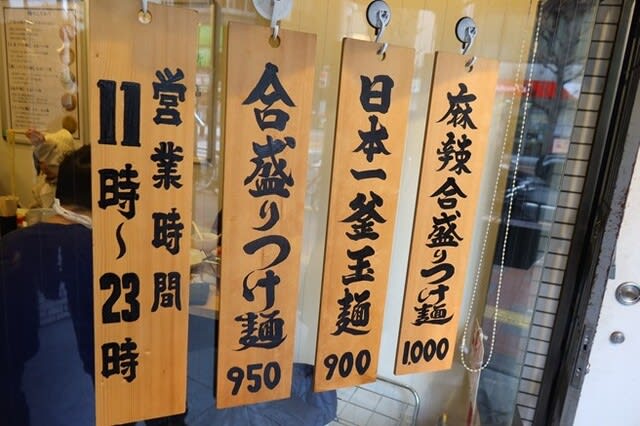 営業時間
11時～23時
合盛りつけ麺
950
日本一釜玉麺
900
麻辣合盛りつけ麺
1.000